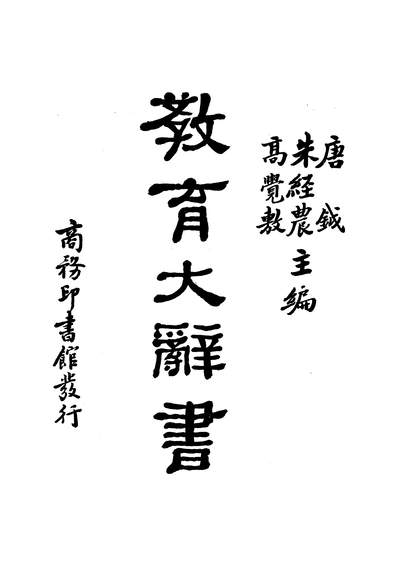 唐鉞
朱經農
高覺敷
主編
教育大辭書
商務印書館發行